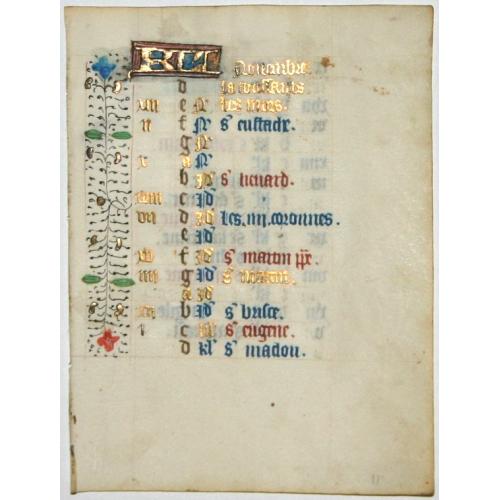 KL Nouembre
d la toussains
xiii e N les mors.
ii f N s' eustace.
g N
x a N
b Id s' lienard.
xviii c Id
vii d Id les .iiii. coronnes.
e Id
xv f Id s' martin pp̄e
iiii g Id s' martin
a Id
xii b Id s' brisce.
i c kl s' eugene.
d kl s' maclou.